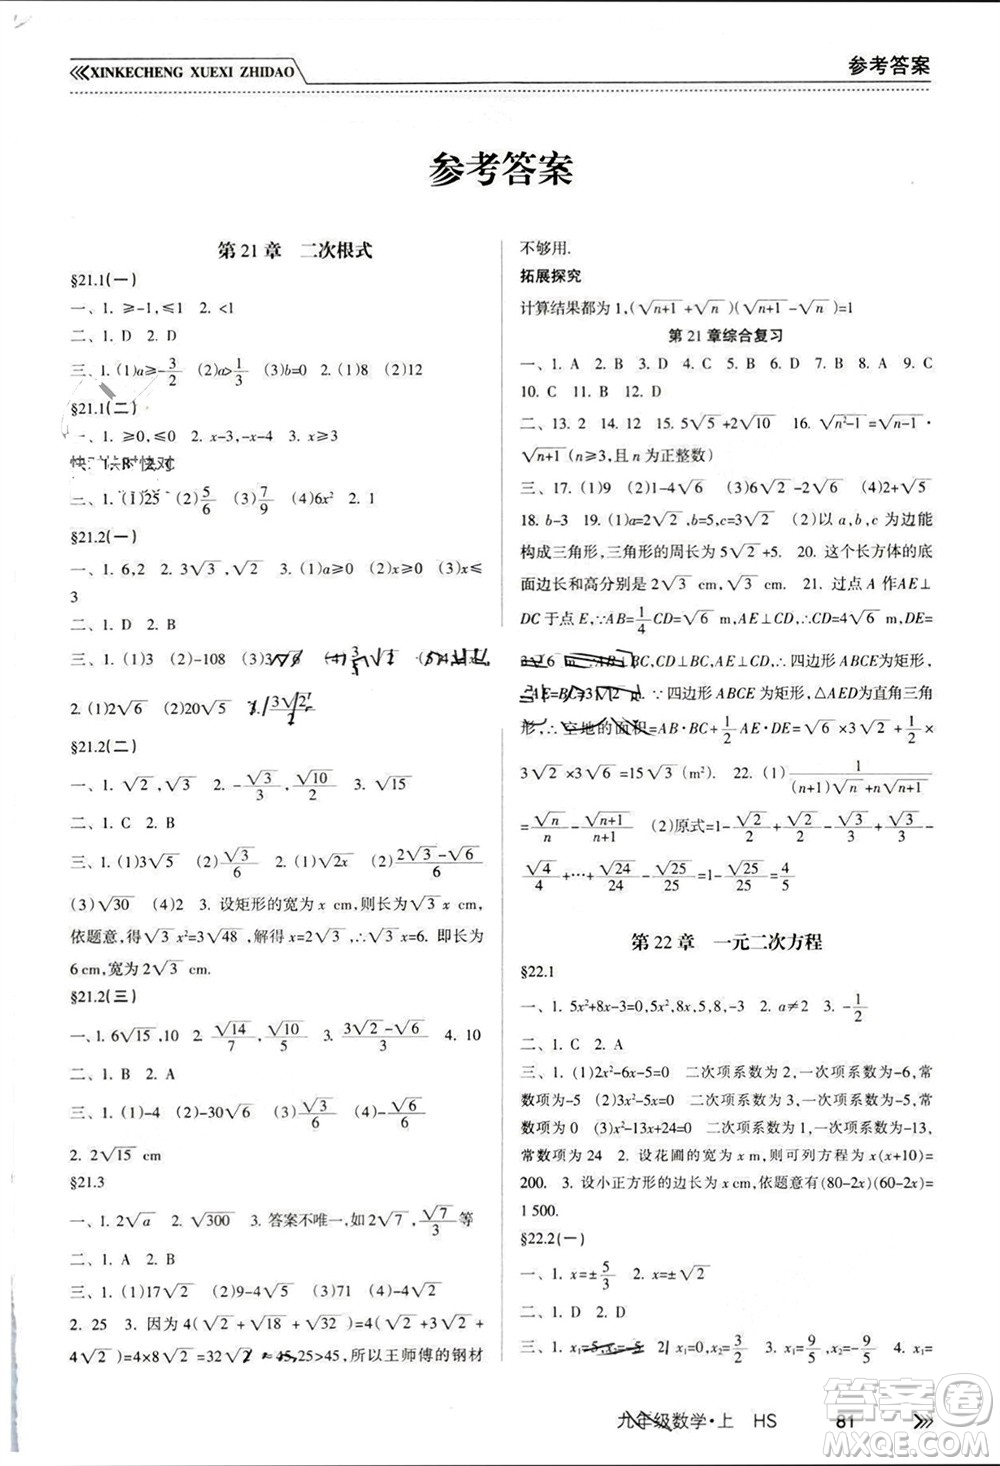 XINKECHENG XUEXI ZHIDAO
参考答案
参考答案
第 21 章　二次根式
§21.1(一)
一、1. ≥-1,≤1　2. <1
二、1. D　2. D
三、1. (1)a≥-3/2　(2)a>1/3　(3)b=0　2. (1)8　(2)12
§21.1(二)
一、1. ≥0,≤0　2. x-3,-x-4　3. x≥3
1. B　2. C
二、1. (1)25　(2)5/6　(3)7/9　(4)6x²　2. 1
§21.2(一)
一、1. 6,2　2. 3√3,√2　3. (1)a≥0　(2)0≤x≤
3
二、1. D　2. B
三、1. (1)3　(2)-108　(3)3√6
2. (1)2√6　(2)20√5　3√2/2
§21.2(二)
一、1. √2,√3　2. -√3/3,√10/5　3. √15
二、1. C　2. B
三、1. (1)3√5　(2)√3/6　2. (1)√2x　(2)(2√3-√6)/6
(3)√30　(4)2　3. 设矩形的宽为 x cm,则长为√3x cm,
依题意,得√3x²=3√48,解得 x=2√3,∴√3x=6. 即长为
6 cm,宽为 2√3 cm.
§21.2(三)
一、1. 6√15,10　2. √14/7,√10/5　3. (3√2-√6)/3　4. 10
二、1. B　2. A
三、1. (1)-4　(2)-30√6　(3)√3/6　(4)√6/6
2. 2√15 cm
§21.3
一、1. 2√a　2. √300　3. 答案不唯一,如 2√7,√7/3等
二、1. A　2. B
三、1. (1)17√2　(2)9-4√5　(3)71　(4)-4√2
2. 25　3. 因为 4(√2+√18+√32)=4(√2+3√2+
4√2)=4×8√2=32√2≈45,25>45,所以王师傅的钢材
不够用.
拓展探究
计算结果都为 1,(√n+1+√n)(√n+1-√n)=1
第 21 章综合复习
一、1. A　2. B　3. D　4. C　5. C　6. B　7. A　8. A　9. C
10. C　11. B　12. D
二、13. 2　14. 12　15. 5√5+2√10　16. √n²-1=√n-1·
√n+1(n≥3,且 n 为正整数)
三、17. (1)9　(2)1-4√6　(3)6√2-2√6　(4)2+√5
18. b-3　19. (1)a=2√2,b=5,c=3√2　(2)以 a,b,c 为边能
构成三角形,三角形的周长为 5√2+5.　20. 这个长方体的底
面边长和高分别是√3 cm,√6 cm　21. 过点 A 作 AE⊥
DC 于点 E,∵AB=1/4CD=√6 m,AE⊥CD,∴CD=4√6 m,DE=
3√6 m.∵AB⊥BC,CD⊥BC,AE⊥CD,∴四边形 ABCE 为矩形,
∴AE=BC=3√2 m. ∵四边形 ABCE 为矩形,△AED 为直角三角
形,∴空地的面积=AB·BC+1/2AE·DE=√6×3√2+1/2×
3√2×3√6=15√3(m²)　22. (1)1/((n+1)√n+n√n+1)
=√n/n-√n+1/(n+1)　(2)原式=1-√2/2+√2/2-√3/3+√3/3-
√4/4+…+√24/24-√25/25=1-√25/25=4/5
第 22 章　一元二次方程
§22.1
一、1. 5x²+8x-3=0,5x²,8x,5,8,-3　2. a≠2　3. -1/2
二、1. C　2. A
三、1. (1)2x²-6x-5=0　二次项系数为 2,一次项系数为-6,常
数项为-5　(2)3x²-5x=0　二次项系数为 3,一次项系数为-5,常
数项为 0　(3)x²-13x+24=0　二次项系数为 1,一次项系数为-13,
常数项为 24　2. 设花圃的宽为 x m,则可列方程为 x(x+10)=
200.　3. 设小正方形的边长为 x cm,依题意有(80-2x)(60-2x)=
1 500.
§22.2(一)
一、1. x=±5/3　2. x=±√2
二、1. D　2. D
三、1. x₁=5,x₂=-5　2. x₁=0,x₂=3/2　3. x₁=9/5,x₂=-9/5　4. x₁=
九年级数学·上　HS
81
答案卷
MXQE.COM